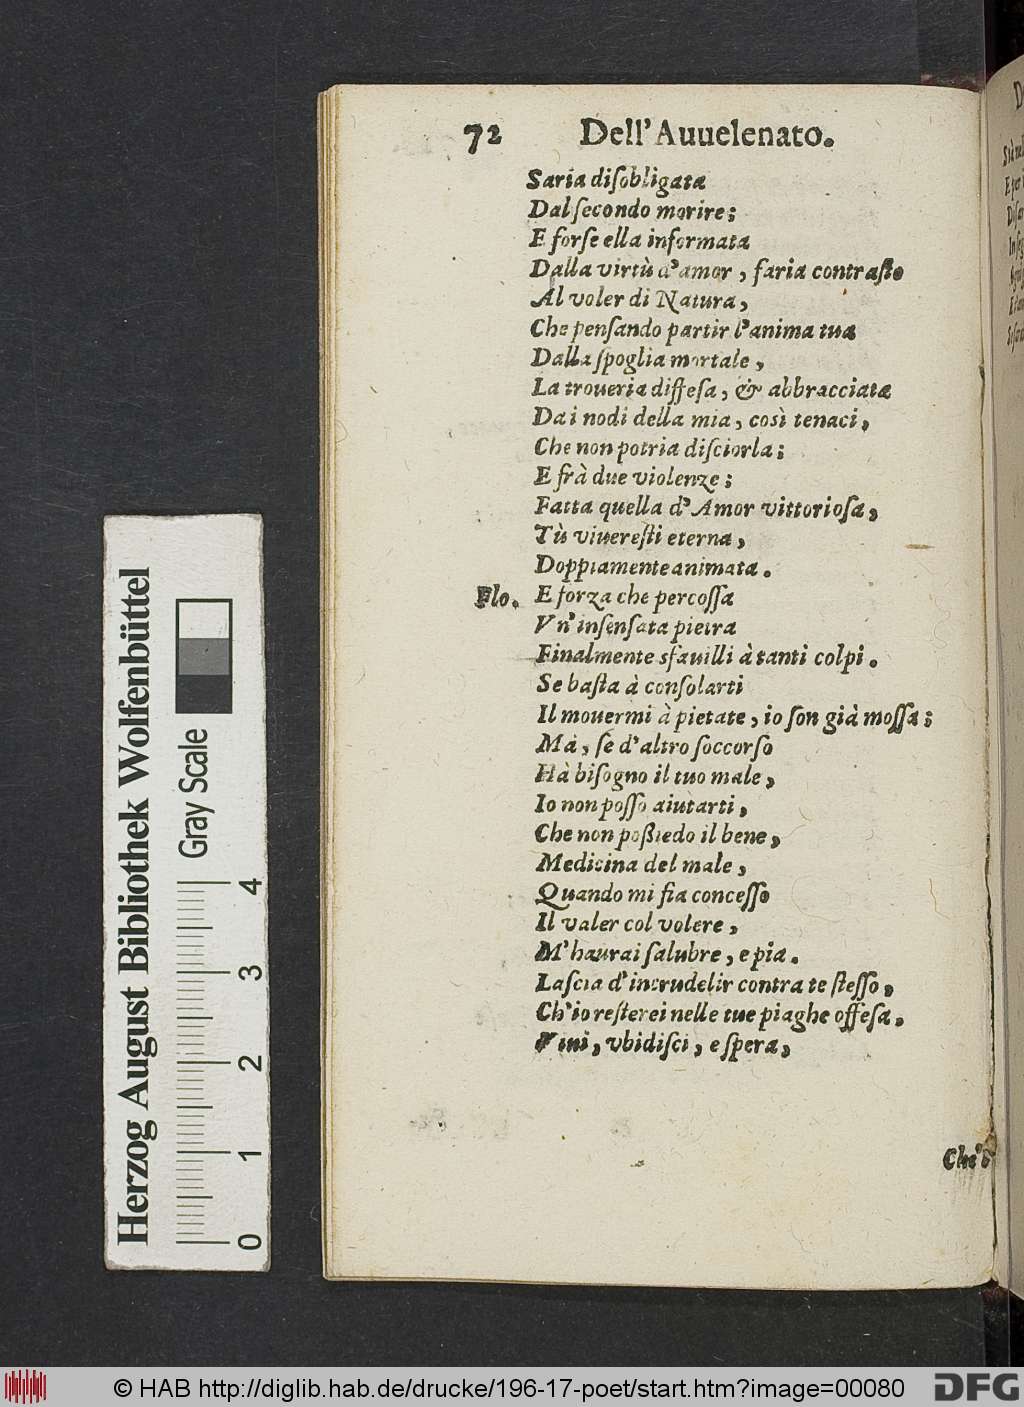 72 Dell'Auuelenato.
Saria diſobligata
Dal ſecondo morire;
E forſe ella informata
Dalla virtù d'amor, faria contraſto
Al voler di Natura,
Che penſando partir l'anima tua
Dalla ſpoglia mortale,
La troueria diffeſa, & abbracciata
Da i nodi della mia, così tenaci,
Che non potria diſciorla;
E frà due violenze;
Fatta quella d'Amor vittorioſa,
Tù viuereſti eterna,
Doppiamente animata.
Flo. E forza che percoſſa
Vn'inſenſata pietra
Finalmente sfauilli à tanti colpi.
Se baſta à conſolarti
Il mouermi à pietate, io ſon già moſſa;
Mà, ſe d'altro ſoccorſo
Hà biſogno il tuo male,
Io non poſſo aiutarti,
Che non poßiedo il bene,
Medicina del male,
Quando mi fia conceſſo
Il valer col volere,
M'haurai ſalubre, e pia.
Laſcia d'incrudelir contra te ſteſſo,
Ch'io reſterei nelle tue piaghe offeſa.
Viui, vbidiſci, e ſpera,
Herzog August Bibliothek Wolfenbüttel
Gray Scale
0 1 2 3 4
© HAB http://diglib.hab.de/drucke/196-17-poet/start.htm?image=00080
DFG